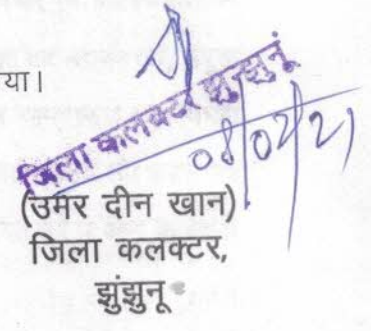 या।
जिला कलक्टर झुन्झुनूं
08/02/21
(उमर दीन खान)
जिला कलक्टर,
झुंझुनू